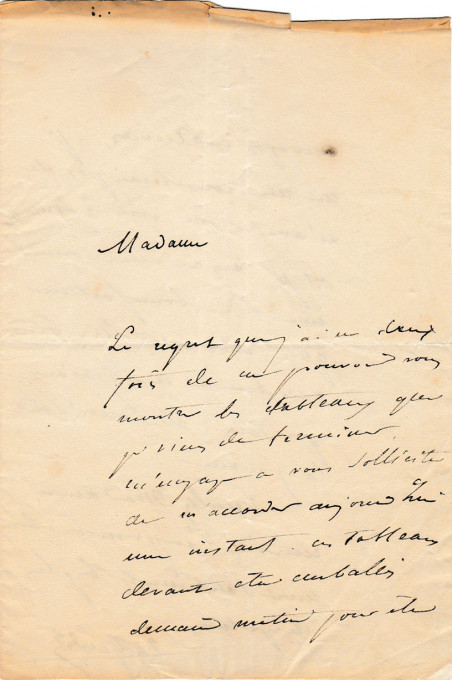 Madame
Le regret que j'ai eu deux
fois de ne pouvoir vous
montrer les tableaux que
je viens de terminer
m'engage a vous solliciter
de m'accorder aujourd'hui
un instant. ces tableaux
devant etre emballés
demain matin pour être